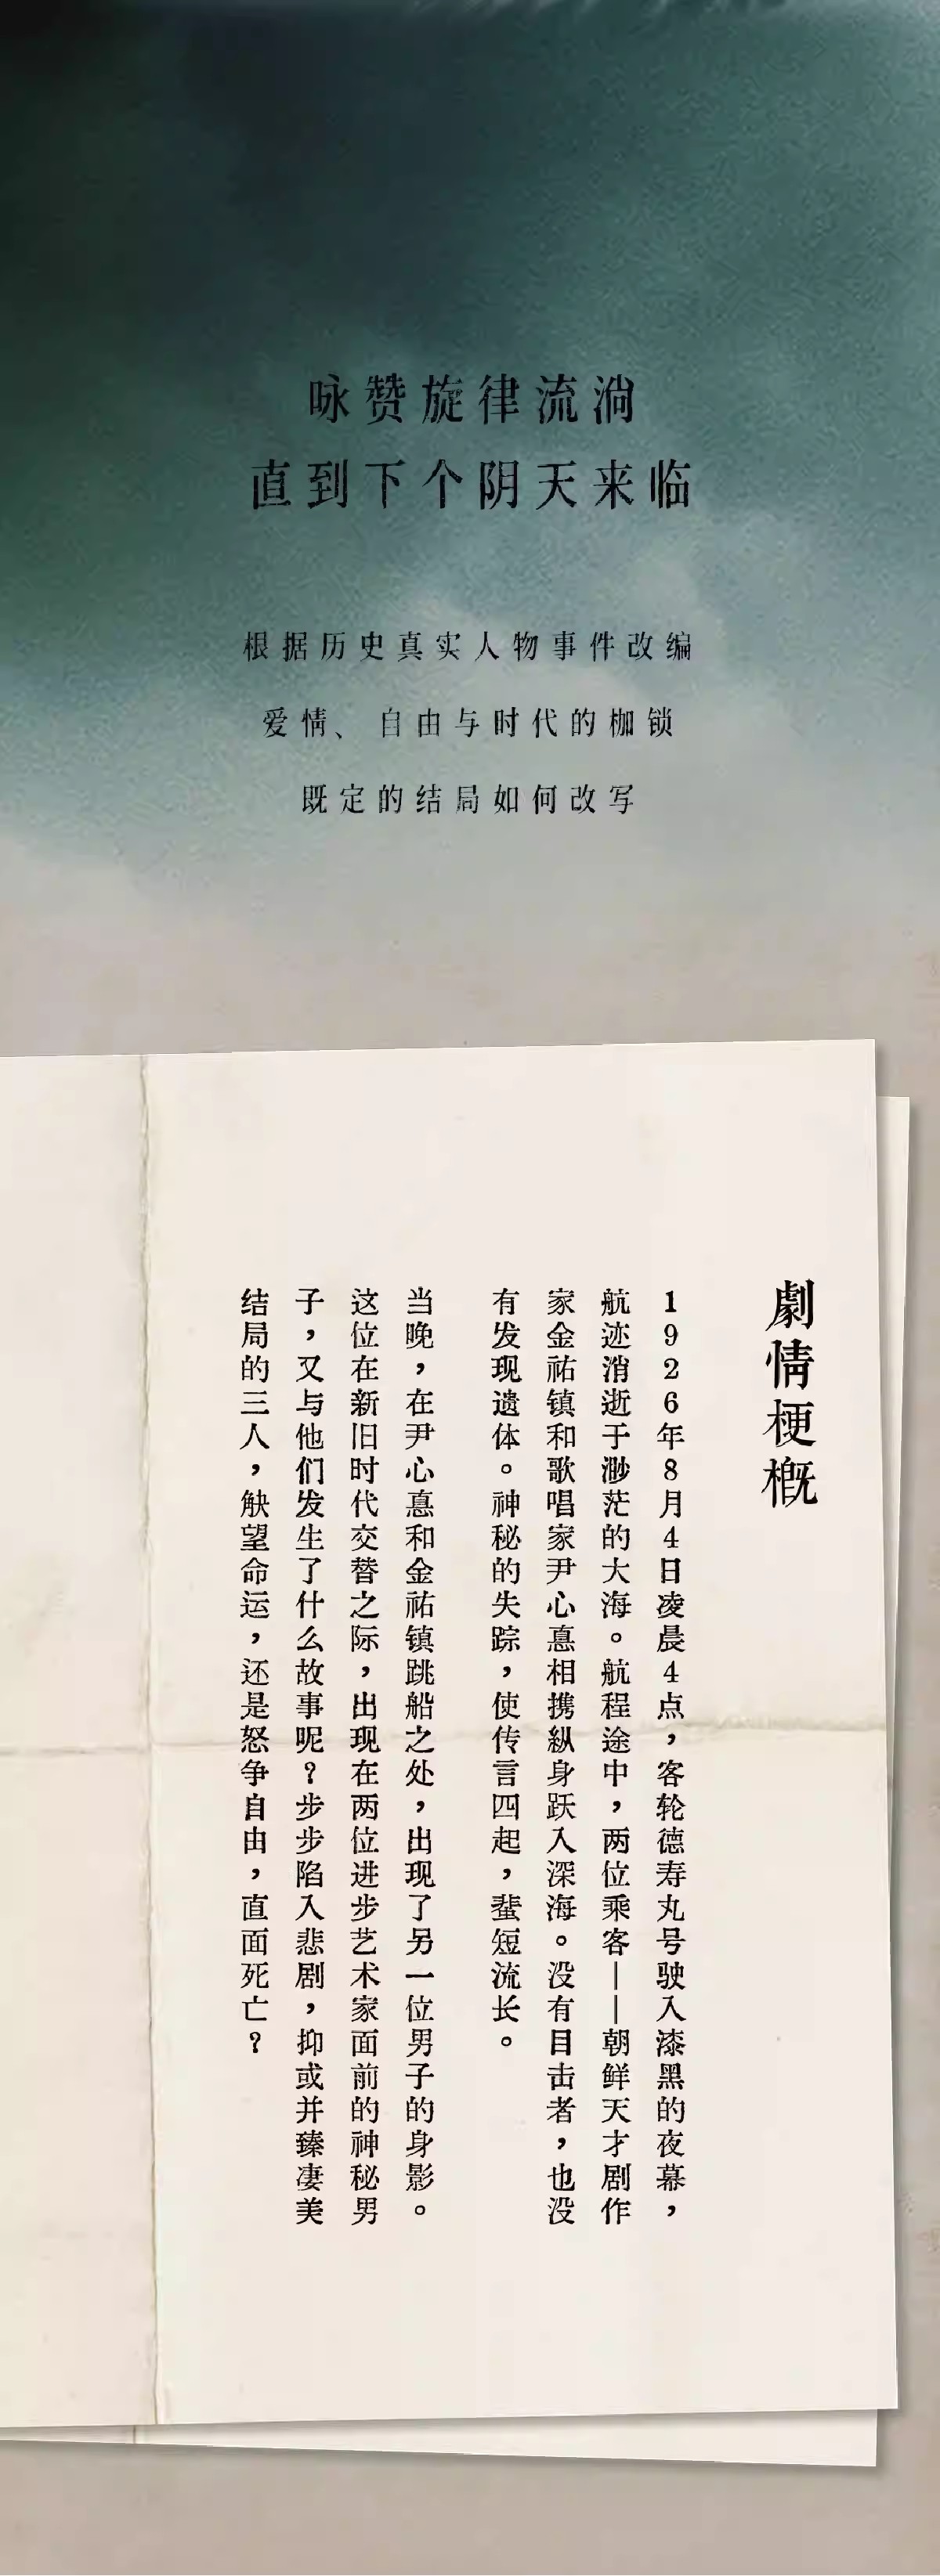 咏赞旋律流淌
直到下个阴天来临
根据历史真实人物事件改编
爱情、自由与时代的枷锁
既定的结局如何改写
劇情梗概
1926年8月4日凌晨4点，客轮德寿丸号驶入漆黑的夜幕，
航迹消逝于渺茫的大海。航程途中，两位乘客——朝鲜天才剧作
家金祐镇和歌唱家尹心悳相携纵身跃入深海。没有目击者，也没
有发现遗体。神秘的失踪，使传言四起，蜚短流长。
当晚，在尹心悳和金祐镇跳船之处，出现了另一位男子的身影。
这位在新旧时代交替之际，出现在两位进步艺术家面前的神秘男
子，又与他们发生了什么故事呢？步步陷入悲剧，抑或并臻凄美
结局的三人，觖望命运，还是怒争自由，直面死亡？